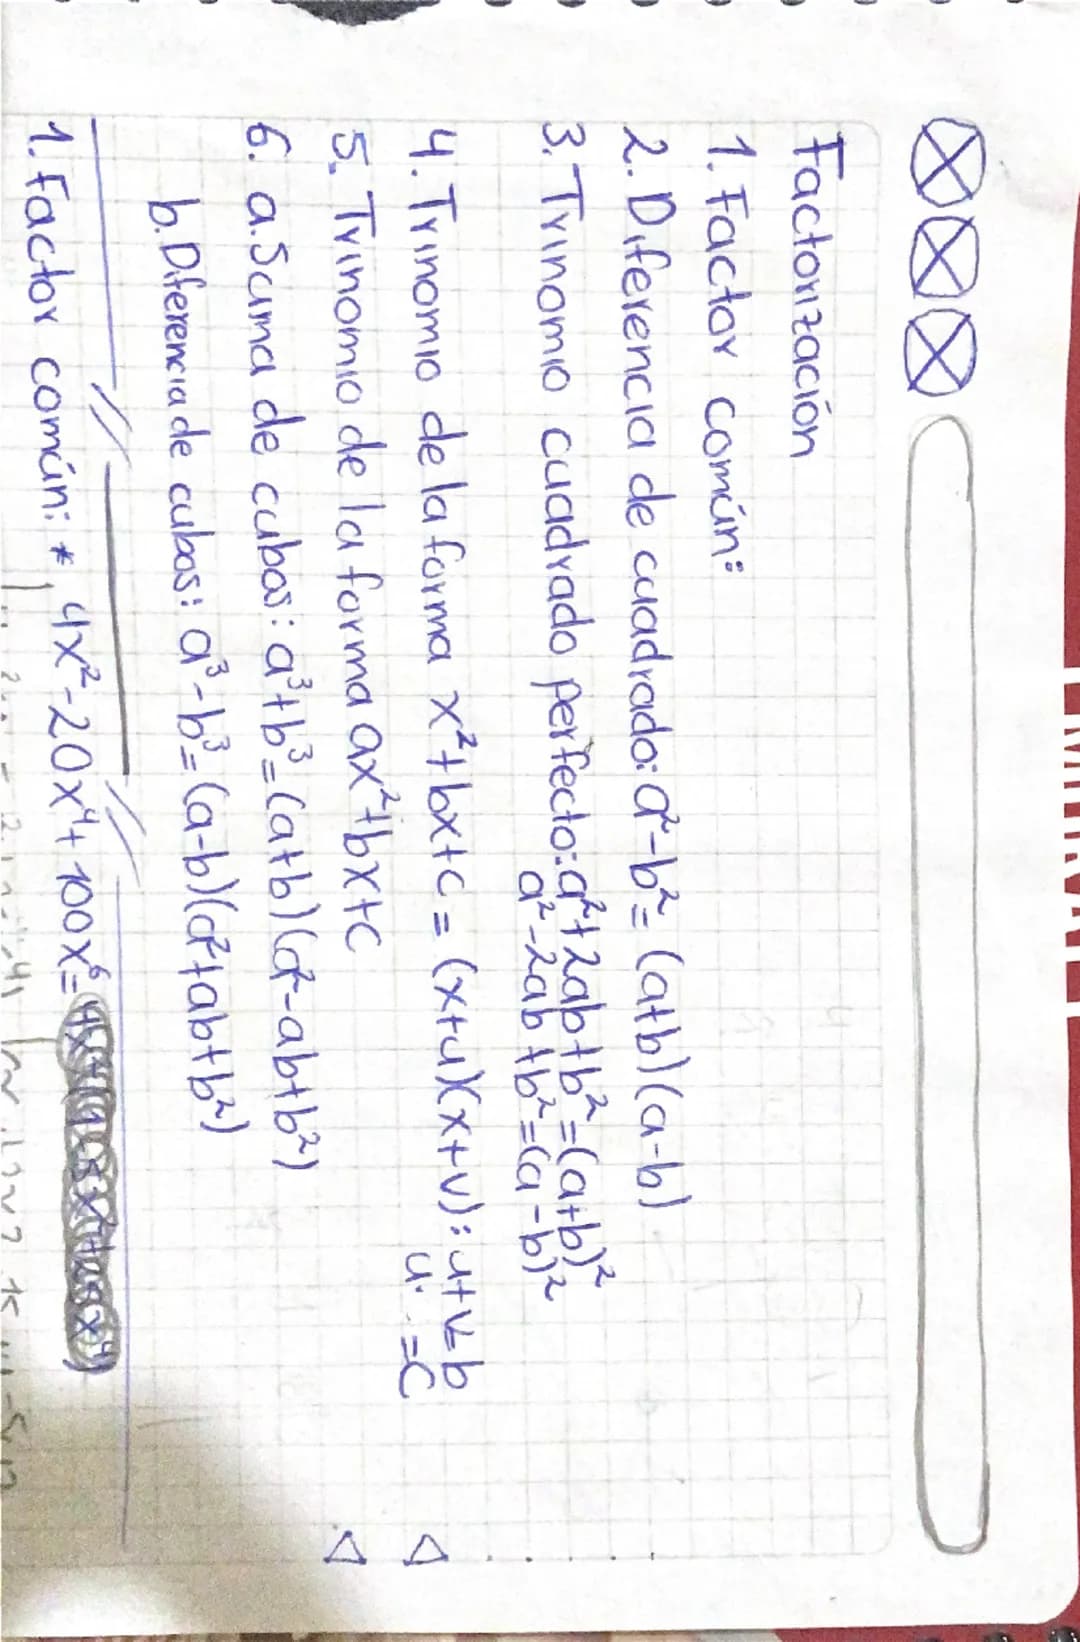 Factorización
1. Factor común:
2. Diferencia de cuadrado: a²-b²= (a+b)(a-b)
3. Trinomio cuadrado perfecto: a²+2ab+b²=(a+b)²
a²-2ab+b²=(a-b)²
4. Trinomio de la forma x²+bx+c= (x+u)(x+v): u+v=b
u· =c
5. Trinomio de la forma ax²+bx+c
6. a. Suma de cubos: a³+b³=(a+b)(a²-ab+b²)
b. Diferencia de cubos: a³-b³=(a-b)(a²+ab+b²)
1. Factor común: * 4x²-20x⁴+100x⁶=